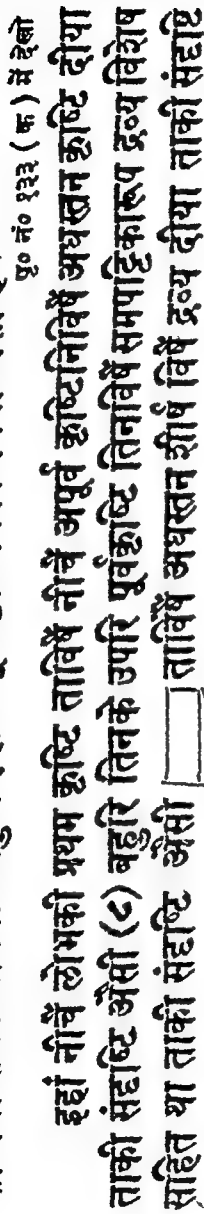 पृ० नं० (क) में देखो
इहां नीचै लोभकी प्रथम कृष्टि ताविषै नीचैं अपूर्व कृष्टिनिविषै अधस्तन कृष्टि दीया
ताकी संदृष्टि औसी (८) बहुरि तिनके उपरि पूर्वकृष्टि तिनविषै समपट्टिकारूप द्रव्य विशेष
सहित था ताकी संदृष्टि औसी ताविषै अधस्तन शीर्ष विषै द्रव्य दीया ताकी संदृष्टि